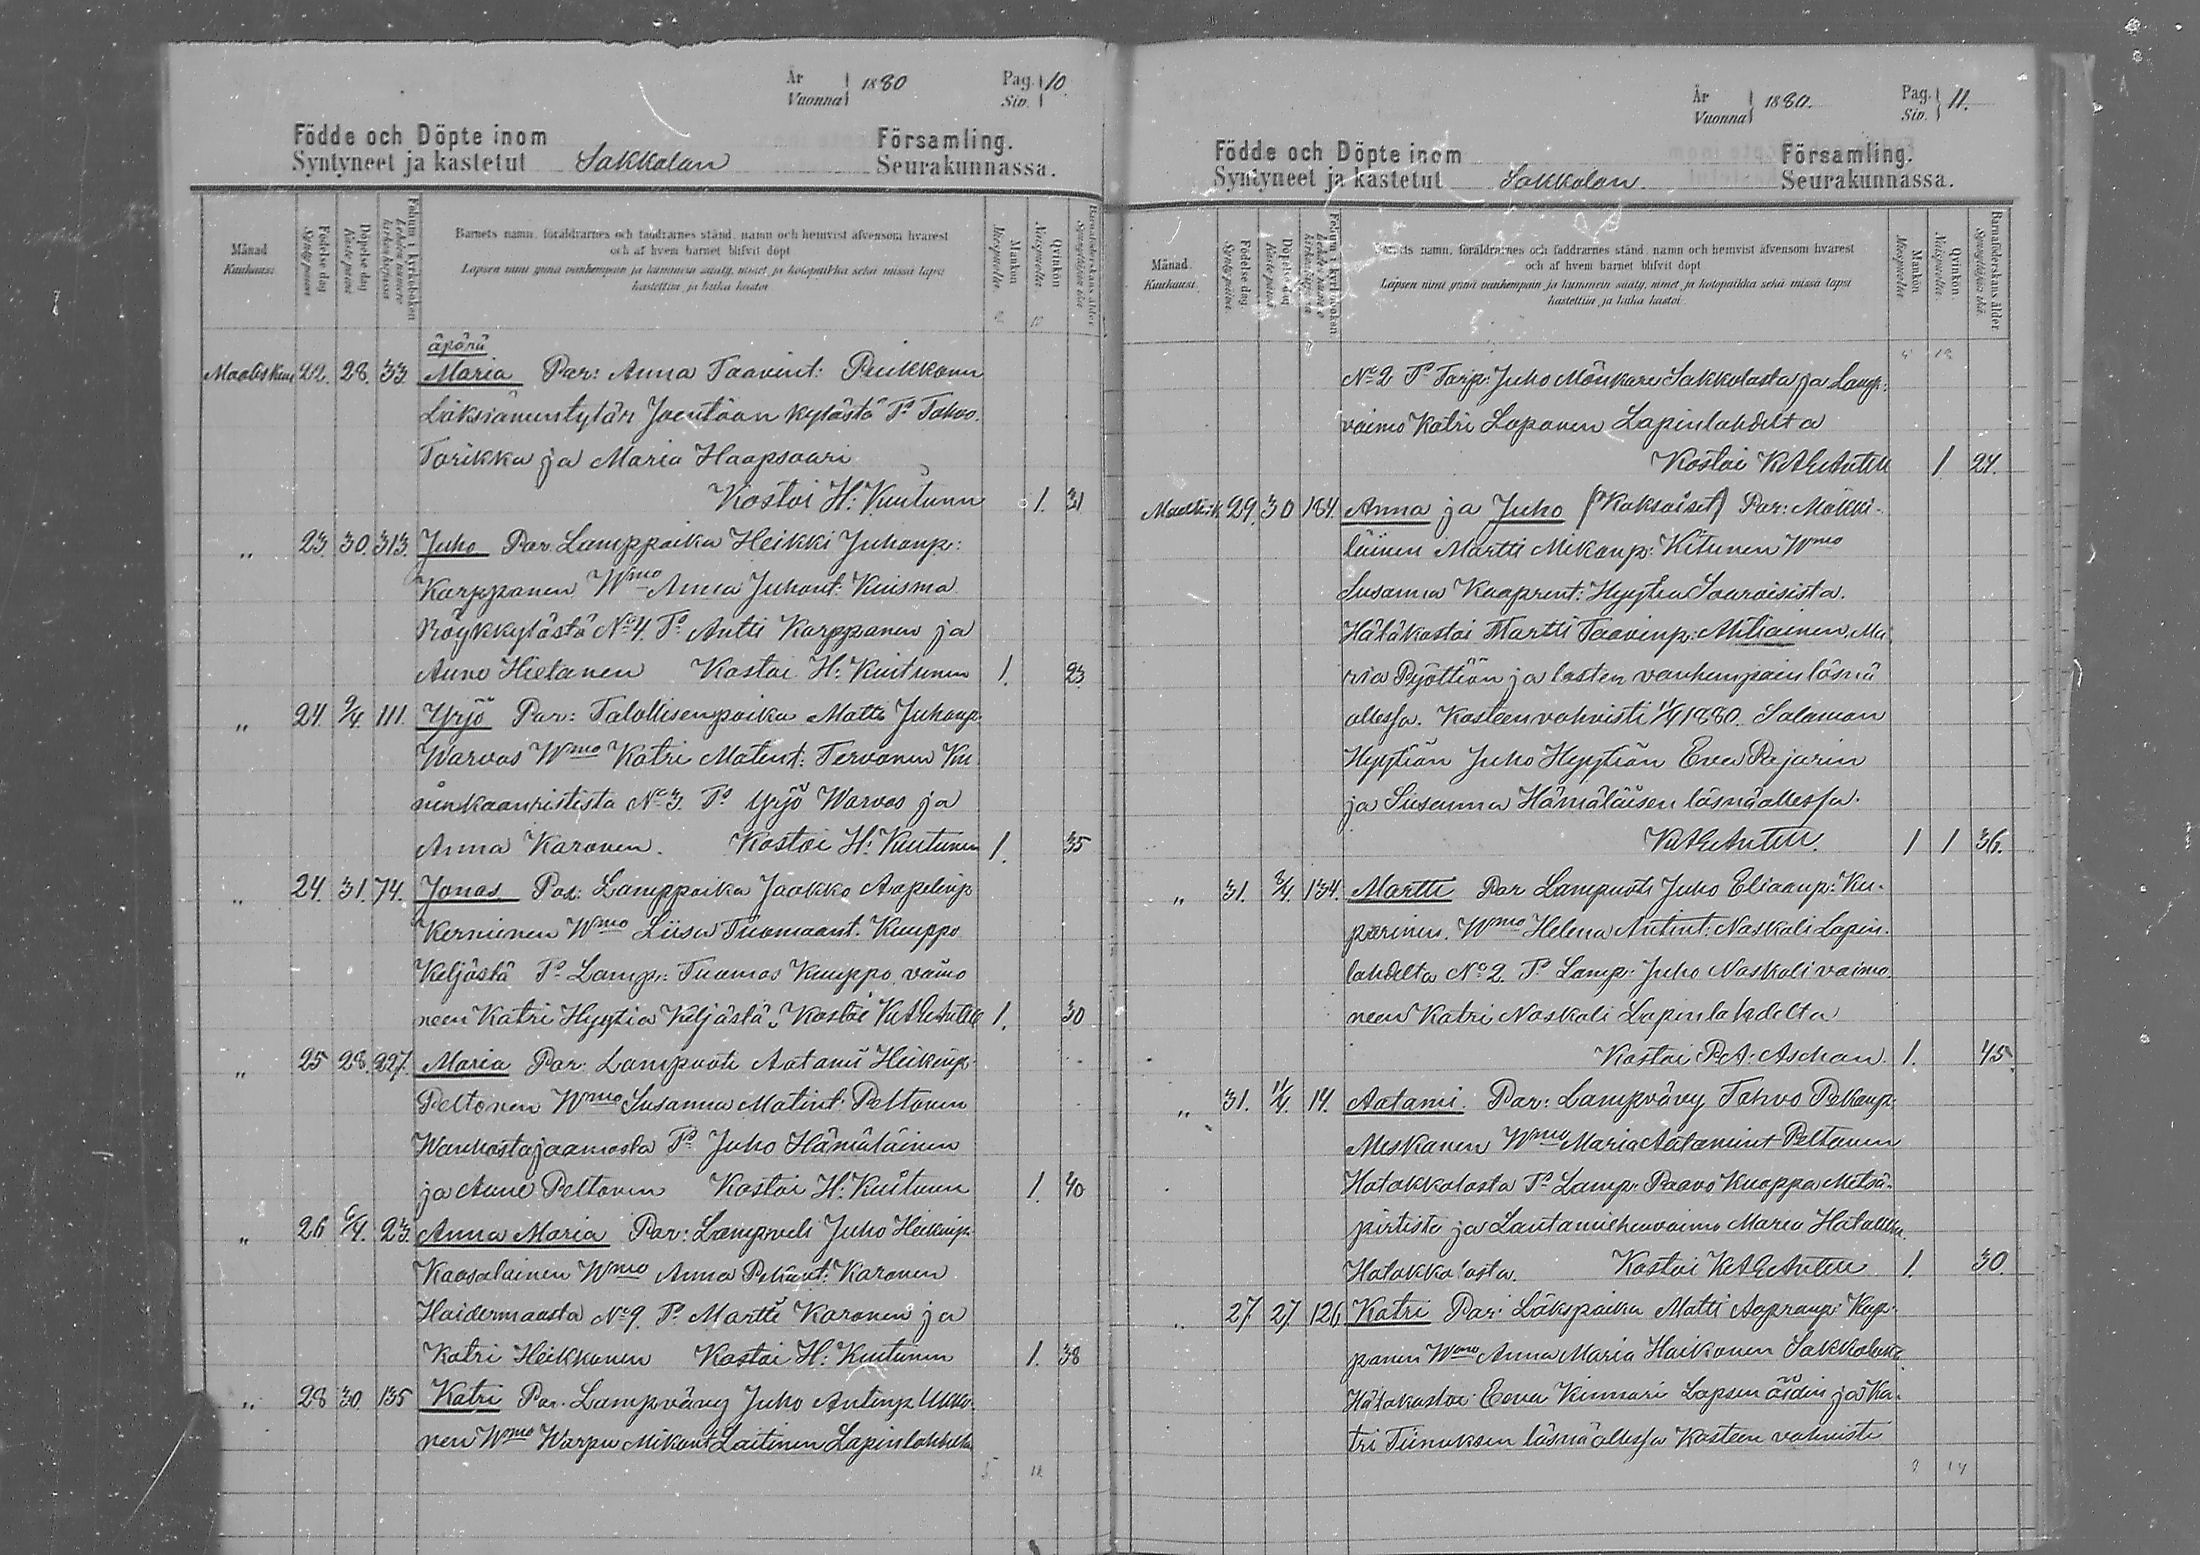 År 1880 Pag. 10.
Vuonna Siv.
Födde och Döpte inom Församling.
Syntyneet ja kastetut Sakkolan Seurakunnassa.
Månad
Kuukausi
Födelse dag
Syntympäivä
Döpelse dag
Kaste päivä
Folium i kyrkoboken
Mankön
Miespuolia.
Qvinkön
Naispuolia.
Barnaföderskans ålder
Barnets namn, föräldrarnes och faddrarnes stånd, namn och hemvist äfvensom hvarest
och af hvem barnet blifvit döpt
Lapsen nimi ynnä vanhempain ja kummein sääty, nimet ja kotopaikka sekä missä lapsi
kastettiin ja kuka kastoi
äpärä
Maalisk 22. 28. 33. Maria Par: Anna Taavint: Peukkonen
Läksiämentytär Joentaan kylästä Ts Tahvo
Torikka ja Maria Haapsaari
Kastoi H: Kuitunen 1. 31
„ 23. 30. 313. Juho Par. Lamppoika Heikki Juhonp:
Karppanen Wmo Anna Juhont: Kuisma
Röykkylästä No 4. Ts Antti Karppanen ja
Anna Hietanen Kastoi H: Kuitunen 1. 23
„ 24. 9/4. 111. Yrjö Par: Talollisenpoika Matti Juhonp.
Warvas Wmo Katri Matint: Tervonen Ku
ninkaanristista No 3. Ts Yrjö Warvas ja
Anna Karonen. Kastoi H: Kuitunen 1. 35
„ 24. 31. 74. Jonas. Par: Lamppoika Jaakko Aapelinp
Kerminen Wmo Liisa Tuomaant. Kuuppo
Keljästä Ts Lamp: Tuomas Kuuppo vaimo
neen Katri Hyytiä Keljästä. Kastoi K.A.E. Antell 1. 30
„ 25 28. 227. Maria Par. Lampuoti Aatami Heikinp
Peltonen Wmo Susanna Matint: Peltonen
Wanhastajaamasta Ts Juho Hämäläinen
ja Anni Peltonen Kastoi H: Kuitunen 1. 40
„ 26 6/4. 23. Anna Maria Par: Lampveli Juho Heikinp
Kaasalainen Wmo Anna Pekant: Karonen
Haidermaasta No 9. Ts Martti Karonen ja
Katri Heikkonen Kastoi H: Kuitunen 1. 38
„ 28 30. 135 Katri Par. Lampvävy Juho Antinp Ukko
nen Wmo Warpu Mikont Laitinen Lapinlahdelta
År 1880. Pag. 11.
Vuonna Siv.
Födde och Döpte inom Församling.
Syntyneet ja kastetut Sakkolan Seurakunnassa.
Månad.
Kuukausi
Födelse dag.
Döpelse dag
Mankön
Miespuolia.
Qvinkön
Naispuolia.
Barnaföderskans ålder
Barnets namn, föräldrarnes och faddrarnes stånd, namn och hemvist äfvensom hvarest
och af hvem barnet blifvit döpt
Lapsen nimi ynnä vanhempain ja kummein sääty, nimet ja kotopaikka sekä missä lapsi
kastettiin ja kuka kastoi
No 2 Ts Torp: Juho Mönkäre Sakkolasta ja Lamp:
vaimo Katri Loponen Lapinlahdelta
Kastoi K.A.E. Antell 1 24.
Maalisk. 29. 30 184. Anna ja Juho (Kaksoiset) Par: Mäkki-
läinen Martti Mikonp: Kitunen Wmo
Susanna Kaaprent: Hyytiä Saaroisista.
Hätäkastoi Martti Taavinp: Ahtiainen, Ma
ria Pyöttiän ja lasten vanhempain läsnä
ollessa. Kasteen vahvisti 11/4 1880. Salamon
Hyytiän Juho Hyytiän Eva Pajarin
ja Susanna Hämäläisen läsnäollessa.
K.A.E. Antell. 1 1 36.
„ 31. 3/4. 134. Martti Par Lampuoti Juho Eliaanp: Ku-
parinen. Wmo Helena Antint: Naskali Lapin-
lahdelta No 2. Ts Lamp: Juho Naskali vaimo
neen Katri Naskali Lapinlahdelta
Kastoi P.A: Aschan. 1. 45
„ 31. 11/4. 14. Aatami. Par: Lampvävy Tahvo Pekanp:
Meskanen Wmo Maria Aatamint Peltonen
Hatakkalasta Ts Lamp: Paavo Kuoppa Metsä-
pirtistä ja Lautamiehenvaimo Maria Hatakka
Hatakkalasta. Kastoi K.A.E. Antell 1. 30.
„ 27. 27 126. Katri Par: Läkspoika Matti Aapramp: Kup-
panen Wmo Anna Maria Haikonen Sakkolasta
Hätäkastoi Eeva Kinnari Lapsen äidin ja Ka-
tri Tiinuksen läsnäollessa Kasteen vahvisti